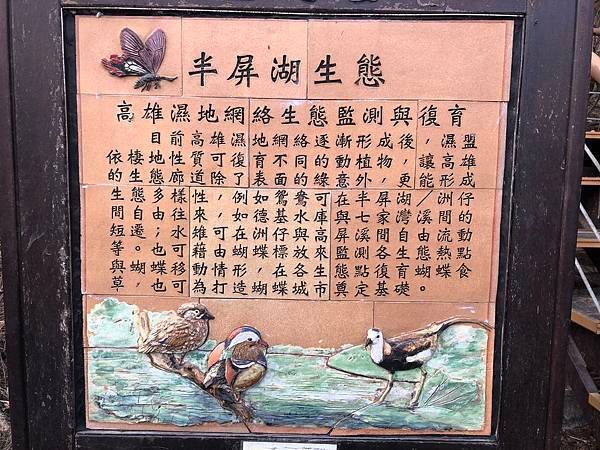 半屏湖生態
高雄濕地網絡生態監測與復育
目前高雄濕地網絡逐漸形成後，濕盟
依棲地性質可復育不同的動植物，讓高雄
的生態廊道除了表面的綠意外，更能形成
生態多樣性，例如鴛鴦可在半屏湖／洲仔
間自由往來，如德基水庫與七家灣溪間的
短遷；水雉可在洲仔與高屏溪間自由流動
等。也可藉由蝴蝶標放來監測各生態熱點
與蝴蝶移動情形，在各生態點復育蝴蝶食
草，也可為打造蝴蝶城市奠定基礎。